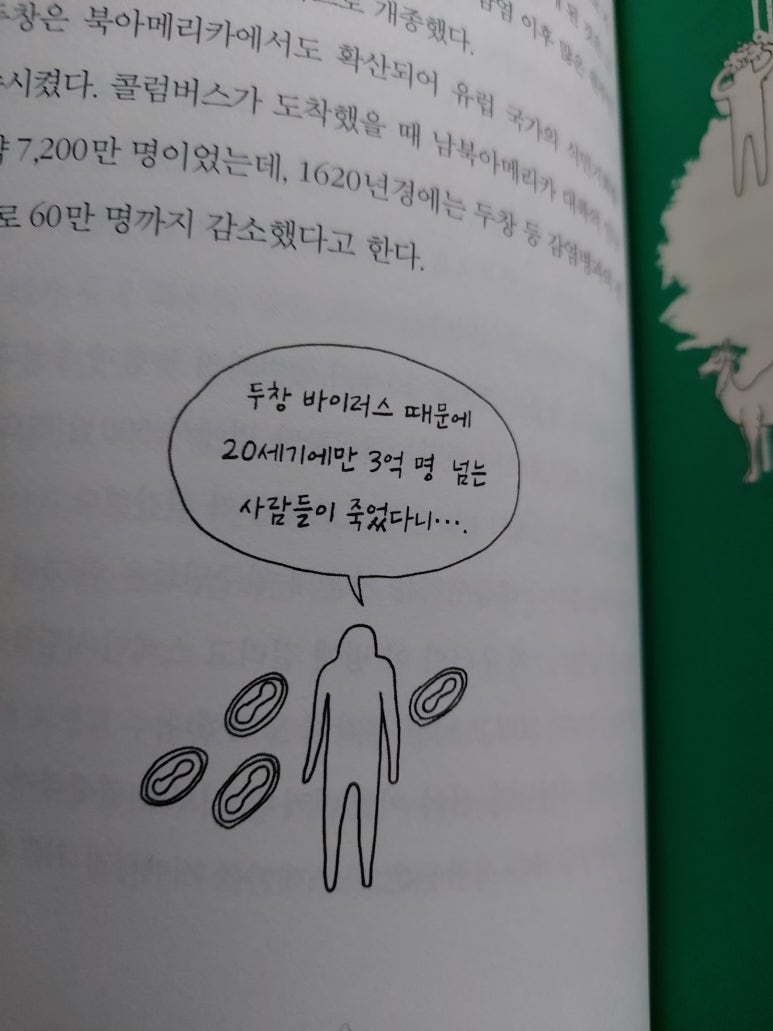 개종했다.
이후 많은
두창은 북아메리카에서도 확산되어 유럽 국가의
시켰다. 콜럼버스가 도착했을 때 남북아메리카 대륙의
7,200만 명이었는데, 1620년경에는 두창 등 감염병과의
로 60만 명까지 감소했다고 한다.
두창 바이러스 때문에
20세기에만 3억 명 넘는
사람들이 죽었다니….